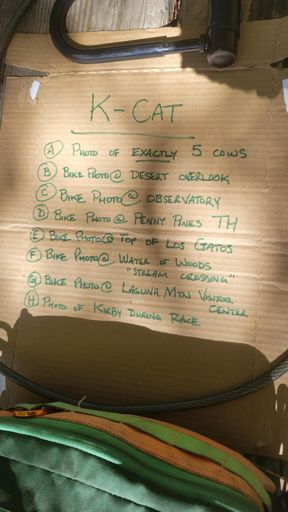 K-CAT
Ⓐ PHOTO OF EXACTLY 5 COWS
Ⓑ BIKE PHOTO @ DESERT OVERLOOK
Ⓒ BIKE PHOTO @ OBSERVATORY
Ⓓ BIKE PHOTO @ PENNY PINES TH
Ⓔ BIKE PHOTO @ TOP OF LOS GATOS
Ⓕ BIKE PHOTO @ WATER OF WOODS
"STREAM CROSSING"
Ⓖ BIKE PHOTO @ LAGUNA MTN VISITOR
CENTER
Ⓗ PHOTO OF KIRBY DURING RACE